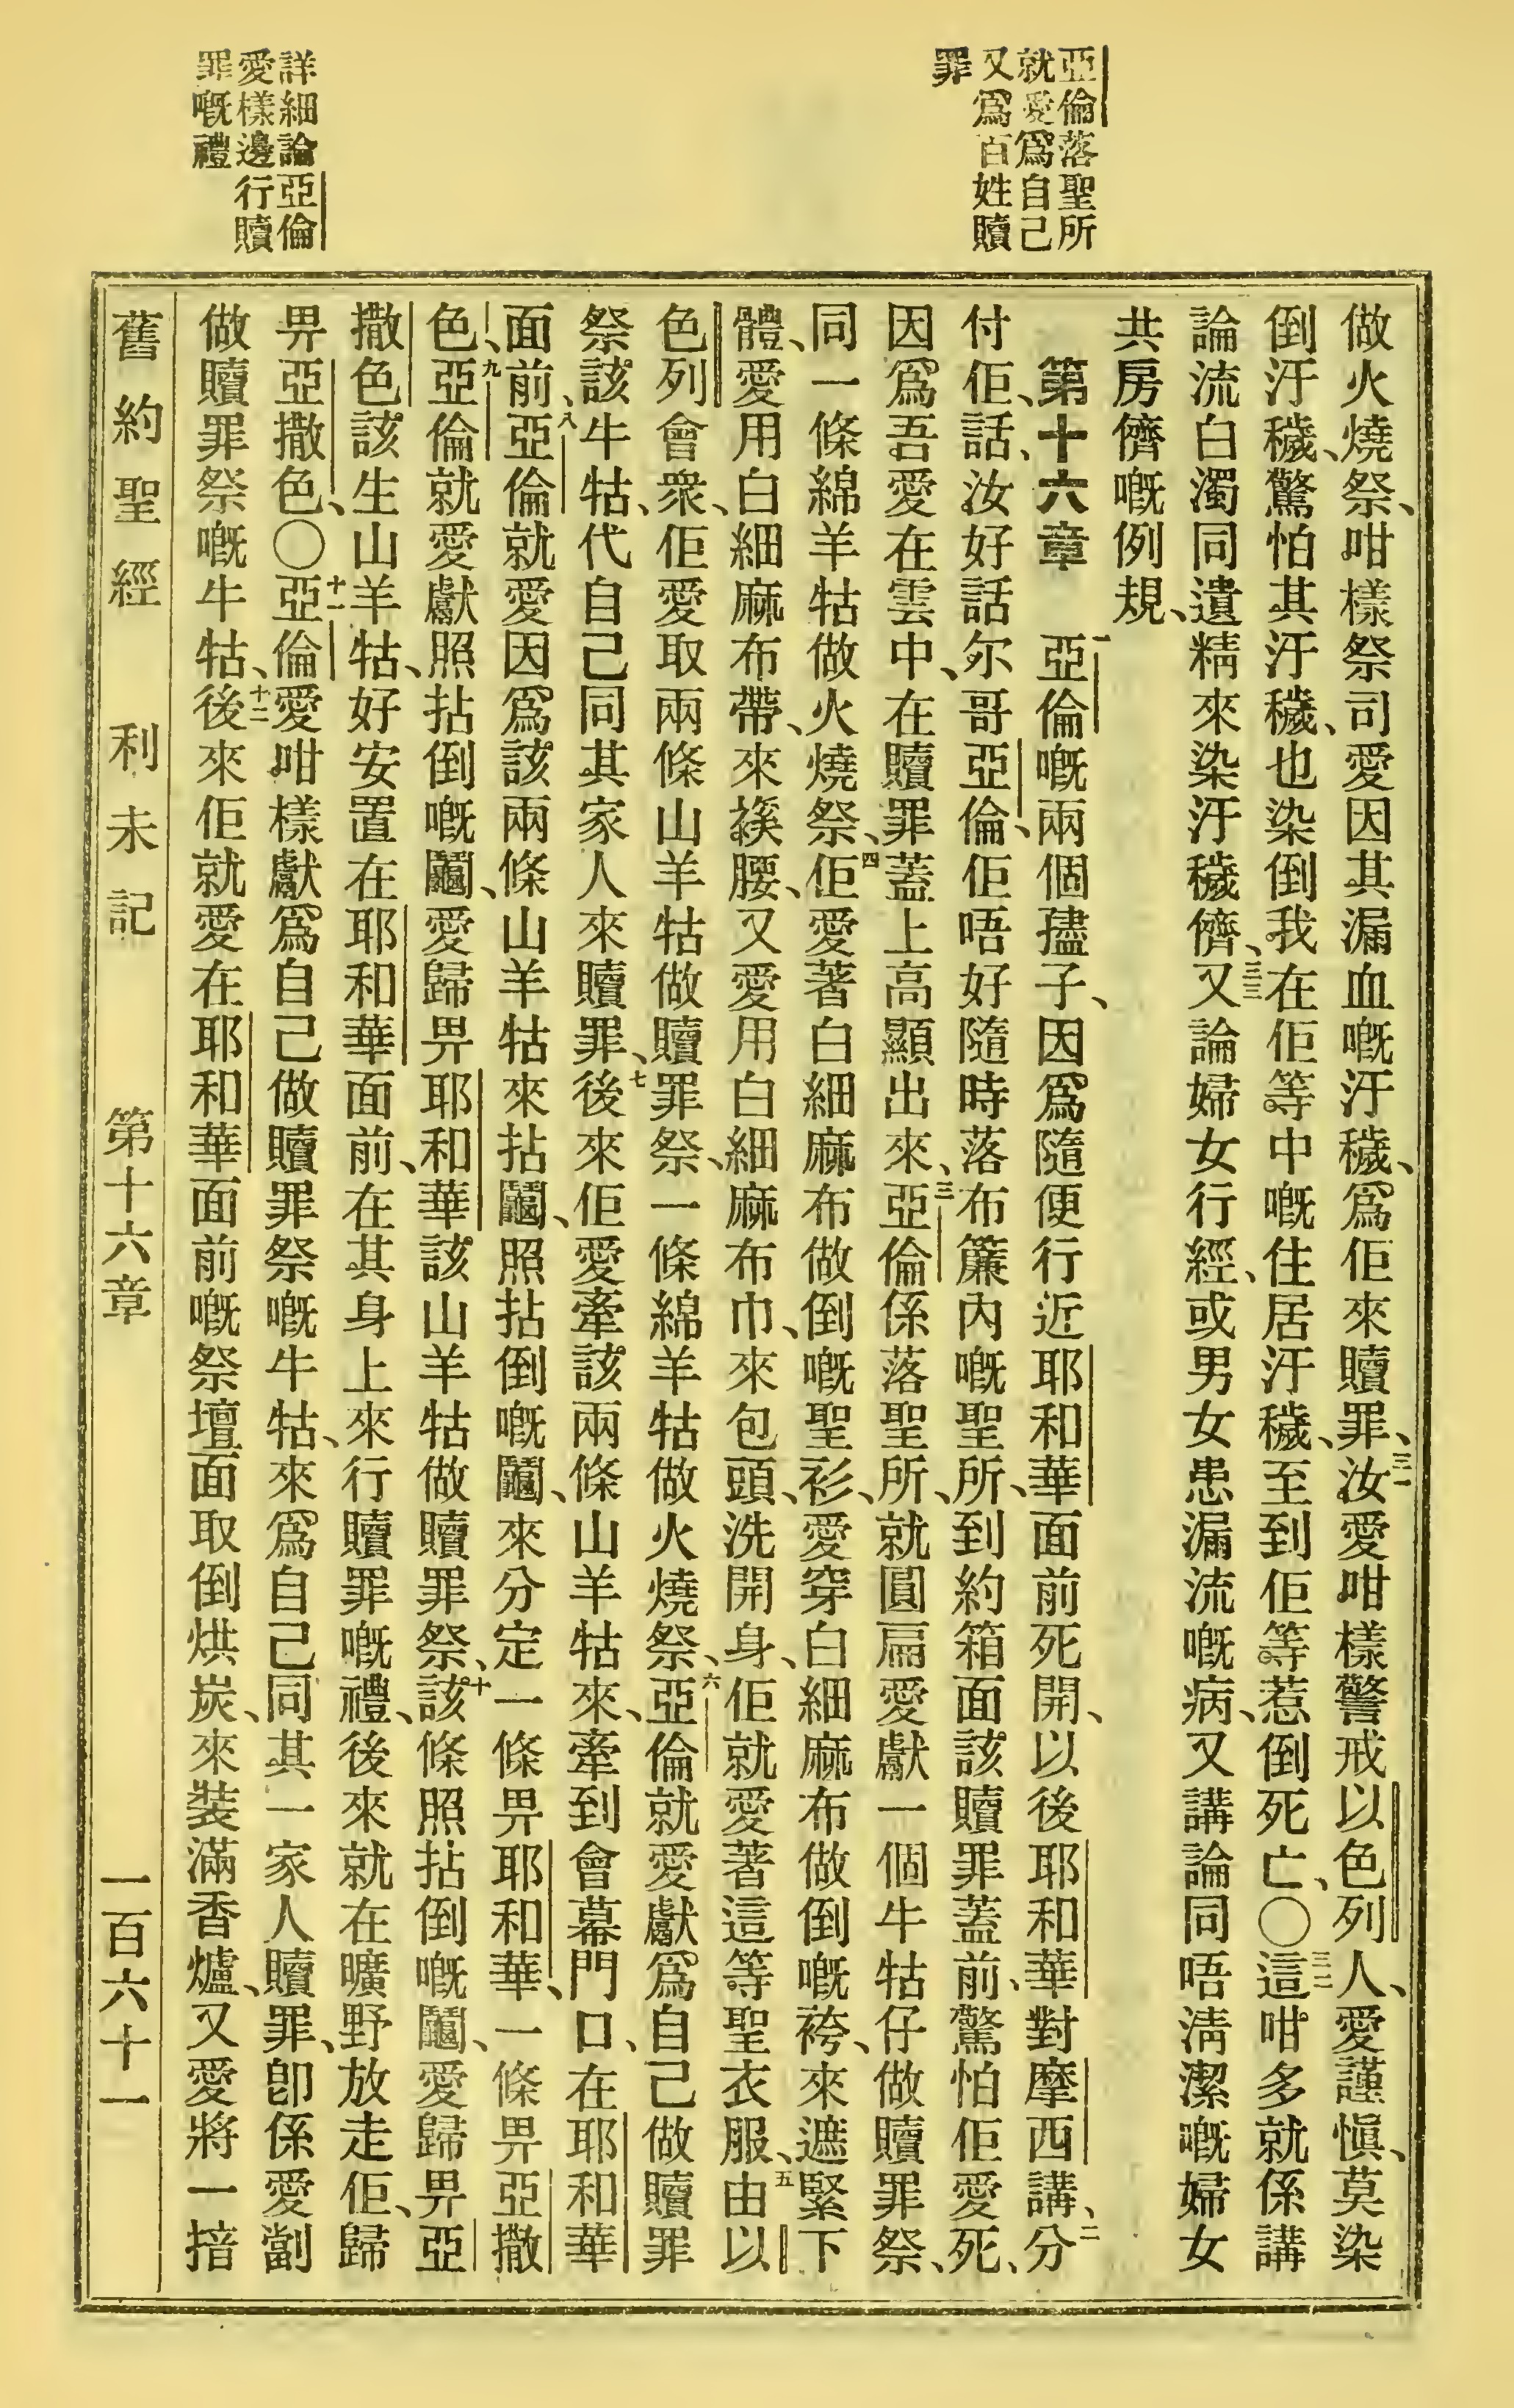 亞倫落聖所
就愛爲自己
又爲百姓贖
罪
詳細論亞倫
愛樣邊行贖
罪嘅禮
做火燒祭、咁樣祭司愛因其漏血嘅汙穢、爲佢來贖罪、三一汝愛咁樣警戒以色列人、愛謹愼、莫染
倒汙穢、驚怕其汙穢、也染倒我在佢等中嘅住居汙穢、至到佢等惹倒死亡、〇三二這咁多就係講
論流白濁同遺精來染汙穢儕、三三又論婦女行經、或男女患漏流嘅病、又講論同唔淸潔嘅婦女
共房儕嘅例規、
第十六章 一亞倫嘅兩個孻子、因爲隨便行近耶和華面前死開、以後耶和華對摩西講、二分
付佢、話、汝好話尔哥亞倫、佢唔好隨時落布簾內嘅聖所、到約箱面該贖罪蓋前、驚怕佢愛死、
因爲吾愛在雲中、在贖罪蓋上高顯出來、三亞倫係落聖所、就圓扁愛獻一個牛牯仔做贖罪祭、
同一條綿羊牯做火燒祭、四佢愛著白細麻布做倒嘅聖衫、愛穿白細麻布做倒嘅袴、來遮緊下
體、愛用白細麻布帶、來𢄙腰、又愛用白細麻布巾、來包頭、洗開身、佢就愛著這等聖衣服、五由以
色列會衆、佢愛取兩條山羊牯做贖罪祭、一條綿羊牯做火燒祭、六亞倫就愛獻爲自己做贖罪
祭該牛牯、代自己同其家人來贖罪、七後來佢愛牽該兩條山羊牯來、牽到會幕門口、在耶和華
面前、八亞倫就愛因爲該兩條山羊牯來拈鬮、照拈倒嘅鬮、來分定一條畀耶和華、一條畀亞撒
色、九亞倫就愛獻照拈倒嘅鬮、愛歸畀耶和華該山羊牯做贖罪祭、十該條照拈倒嘅鬮、愛歸畀亞
撒色該生山羊牯、好安置在耶和華面前、在其身上來行贖罪嘅禮、後來就在曠野放走佢、歸
畀亞撒色、〇十一亞倫愛咁樣獻爲自己做贖罪祭嘅牛牯、來爲自己同其一家人贖罪、卽係愛劏
做贖罪祭嘅牛牯、十二後來佢就愛在耶和華面前嘅祭壇面取倒烘炭、來裝滿香爐、又愛將一揞
舊約聖經 利未記 第十六章 一百六十一